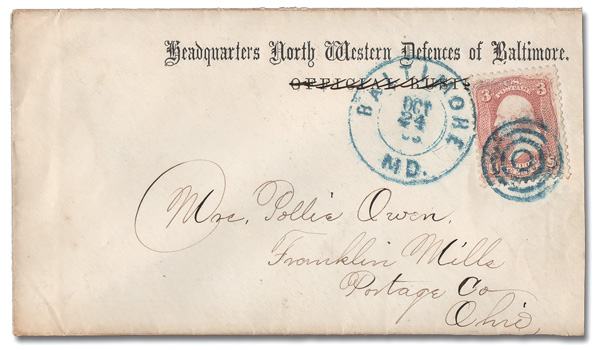 Headquarters North Western Defences of Baltimore.
OFFICIAL BUSI
BALTIMORE
MD.
OCT
24
3
3
U.S.
POSTAGE
Mrs. Pollie Owen,
Franklin Mills
Portage Co
Ohio,